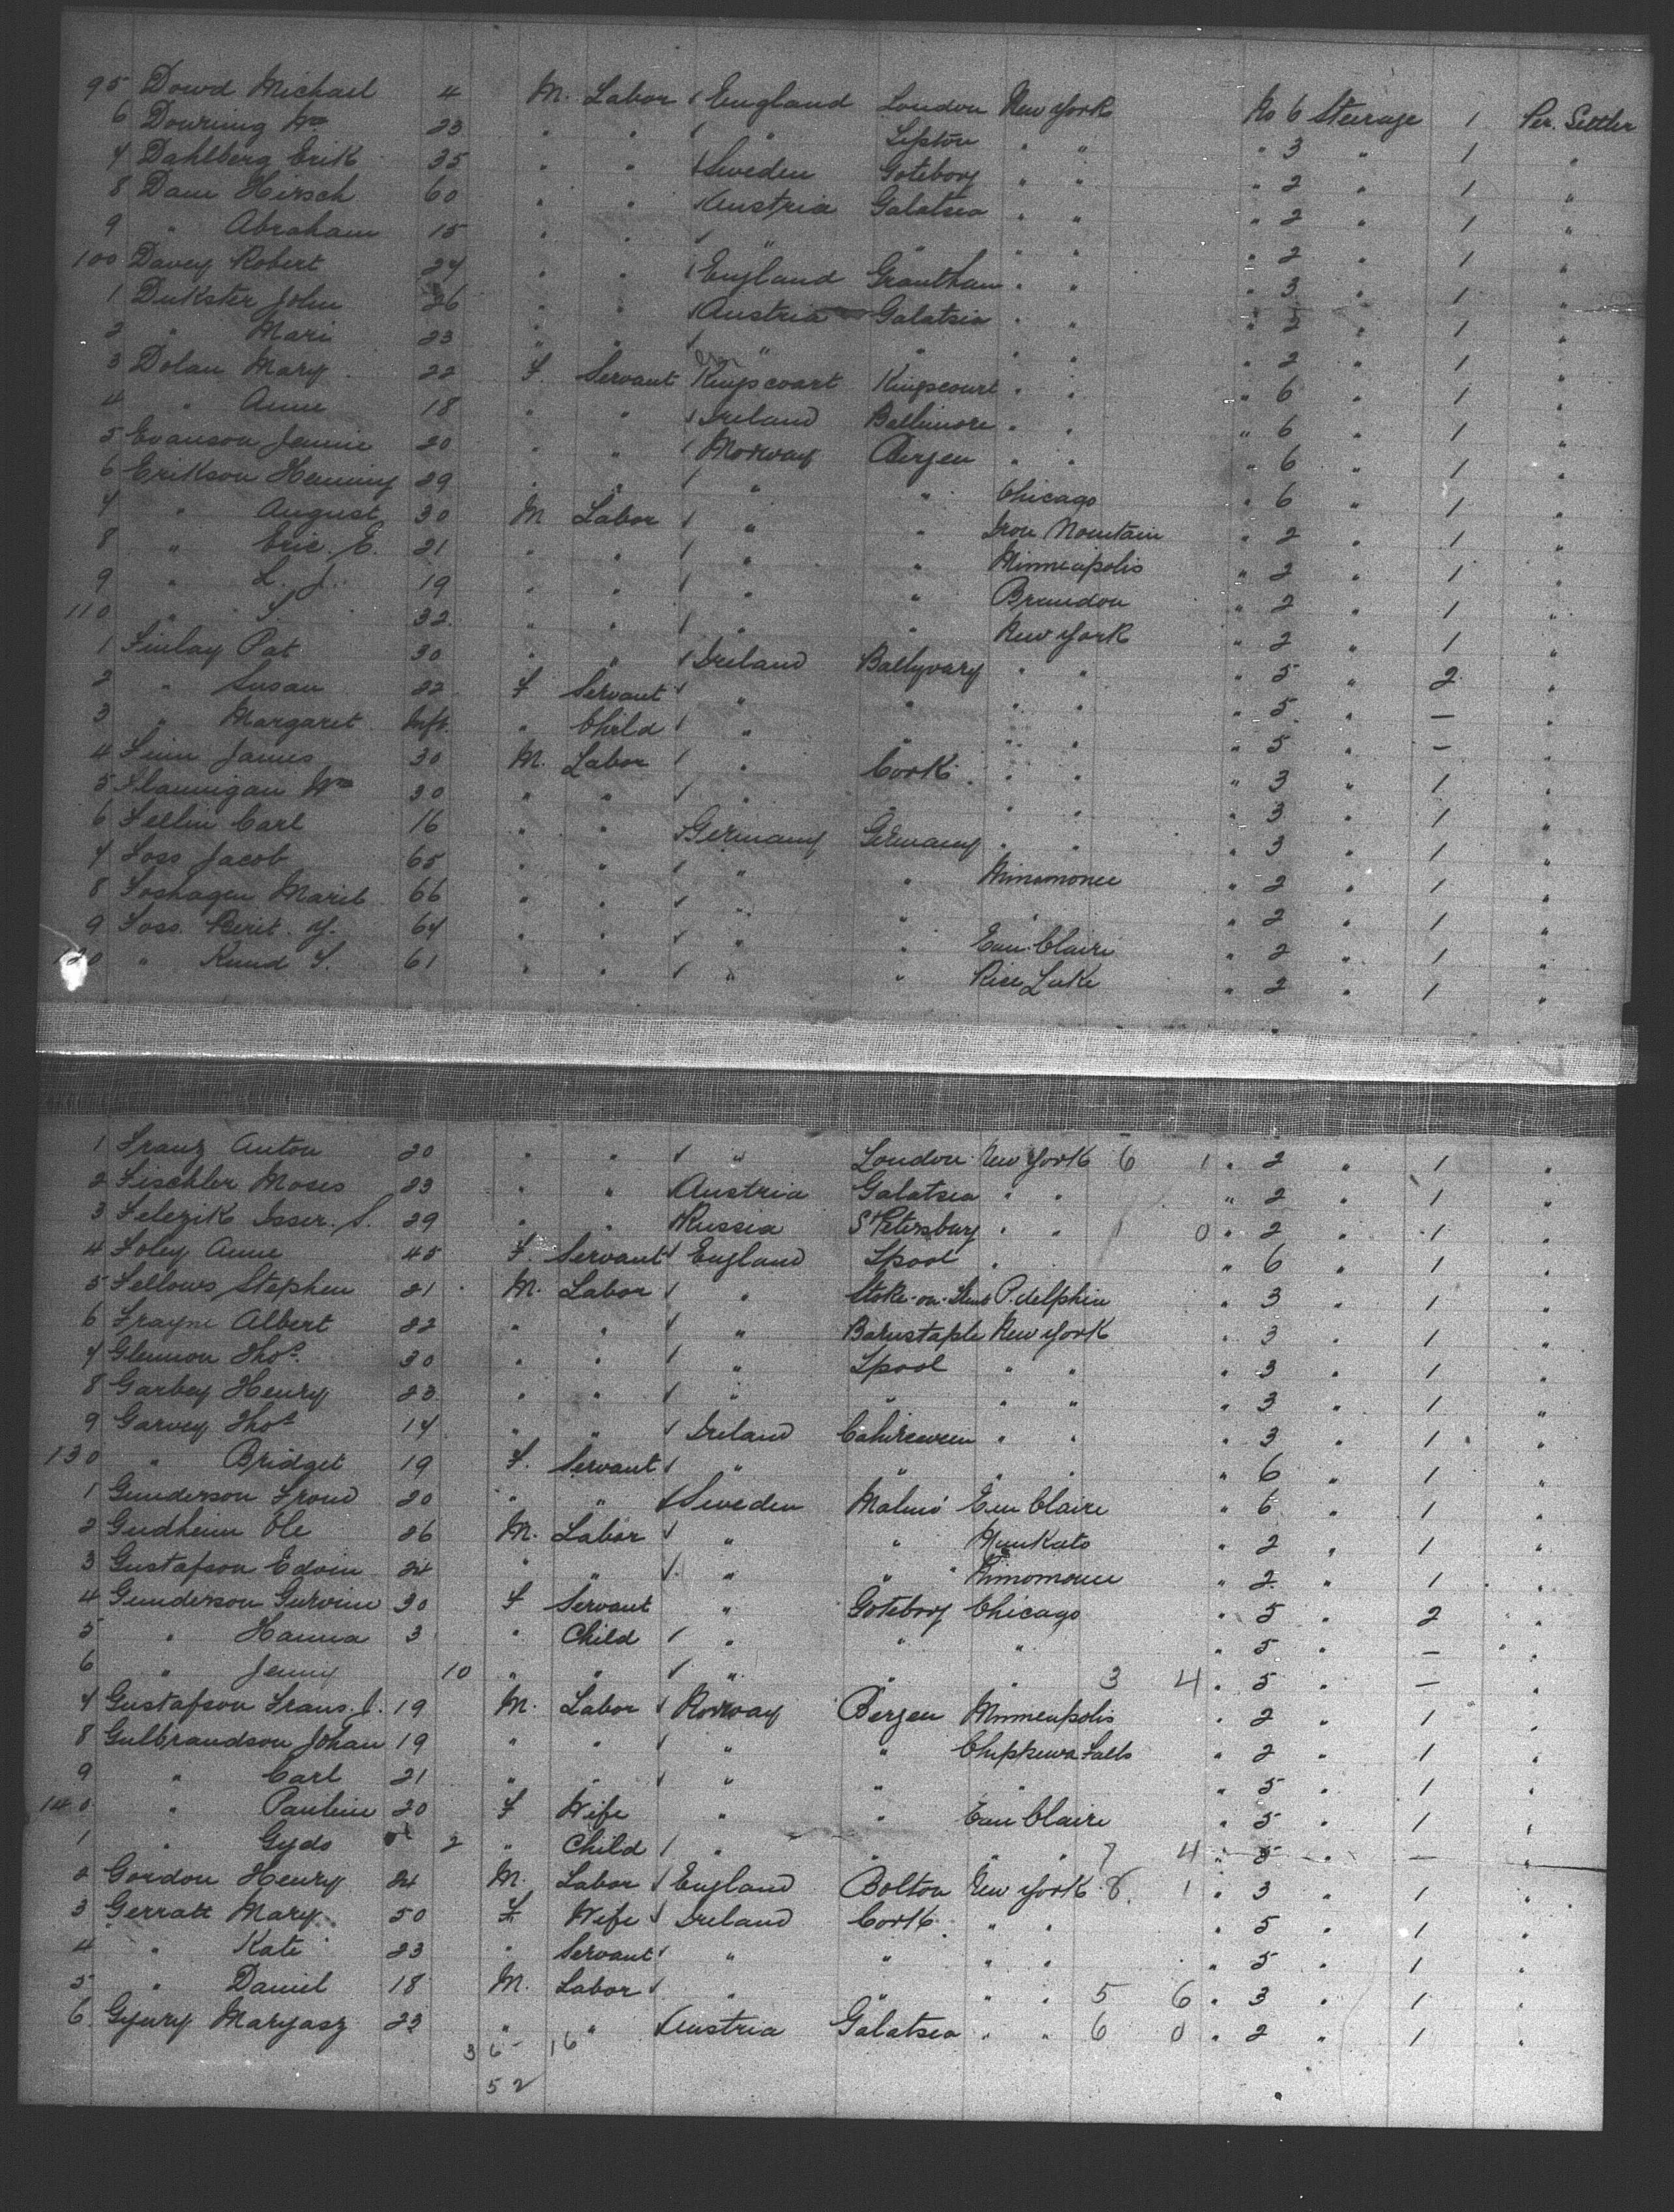 95 Dowd Michael 4 M. Labor England London New York No 6 Steerage 1 Per. Settler
6 Downing Wm 23 " " " Lepton " " " 3 " 1 "
7 Dahlberg Erik 35 " " Sweden Goteborg " " " 2 " 1 "
8 Dam Hirsch 60 " " Austria Galatsea " " " 2 " 1 "
9 " Abraham 15 " " " " " " " 2 " 1 "
100 Davey Robert 24 " " England Grantham " " " 3 " 1 "
1 Dukster John 26 " " Austria Galatsia " " " 2 " 1 "
2 " Mari 23 " " " " " " " 2 " 1 "
3 Dolan Mary 22 F. Servant Kingscourt Kingscourt " " " 6 " 1 "
4 " Anne 18 " " Ireland Baltimore " " " 6 " 1 "
5 Evanson Jennie 20 " " Norway Bergen " " " 6 " 1 "
6 Erikson Henning 29 " " " " Chicago " 6 " 1 "
7 " August 30 M Labor " " Iron Mountain " 2 " 1 "
8 " Eric. E. 21 " " " " Minneapolis " 2 " 1 "
9 " L. J. 19 " " " " Brandon " 2 " 1 "
110 " S. 32 " " " " New York " 2 " 1 "
1 Finlay Pat 30 " " Ireland Ballyvary " " " 5 " 2 "
2 " Susan 22 F Servant " " " " " 5 " — "
3 " Margaret Inft. " Child " " " " " 5 " — "
4 Finn James 30 M. Labor " Cork " " " 3 " 1 "
5 Flannigan Wm 30 " " " " " " " 3 " 1 "
6 Fellin Carl 16 " " Germany Germany " " " 3 " 1 "
7 Foss Jacob 65 " " " " Minomonee " 2 " 1 "
8 Foshagen Marit 66 " " " " " " 2 " 1 "
9 Foss. Berit. Y. 64 " " " " Eau Claire " 2 " 1 "
120 " Knud F. 61 " " " " Rice Lake " 2 " 1 "
1 Franz Anton 20 " " " London New York 6 1 " 2 " 1 "
2 Fischler Moses 23 " " Austria Galatsea " " " 2 " 1 "
3 Felezik Isser. S. 29 " " Russia St Petersburg " " 0 " 2 " 1 "
4 Foley Anne 45 F Servant England Lpool " " 6 " 1 "
5 Fellows Stephen 21 M. Labor " Stoke-on-Trent P.delphia " 3 " 1 "
6 Frayne Albert 22 " " " Barnstaple New York " 3 " 1 "
7 Glennon Thos. 30 " " " Lpool " " " 3 " 1 "
8 Garbey Henry 23 " " " " " " " 3 " 1 "
9 Garvey Thos 14 " " Ireland Cahirciveen " " " 3 " 1 "
130 " Bridget 19 F. Servant " " " " " 6 " 1 "
1 Gunderson Frond 20 " " Sweden Malmö Eau Claire " 6 " 1 "
2 Gudheim Ole 26 M. Labor " " Mankato " 2 " 1 "
3 Gustafson Edvin 24 " " " " Minomonee " 2 " 1 "
4 Gunderson Gurvine 30 F Servant " Goteborg Chicago " 5 " 2 "
5 " Hanna 3 " Child " " " " 5 " — "
6 " Jenny 10 " " " " " 3 4 " 5 " — "
7 Gustafson Frans. J. 19 M. Labor Norway Bergen Minneapolis " 2 " 1 "
8 Gulbrandson Johan 19 " " " " Chippewa Falls " 2 " 1 "
9 " Carl 21 " " " " " " 5 " 1 "
140 " Pauline 20 F Wife " " Eau Claire " 5 " 1 "
1 " Gyds 2 " Child " " " 7 4 " 5 " — "
2 Gordon Henry 24 M. Labor England Bolton New York 8 1 " 3 " 1 "
3 Gerratt Mary 50 F Wife Ireland Cork " " " 5 " 1 "
4 " Kate 23 " Servant " " " " " 5 " 1 "
5 " Daniel 18 M. Labor " " " " 5 6 " 3 " 1 "
6. Gyury Maryasz 23 " " Austria Galatsea " " 6 0 " 2 " 1 "
36 16
52